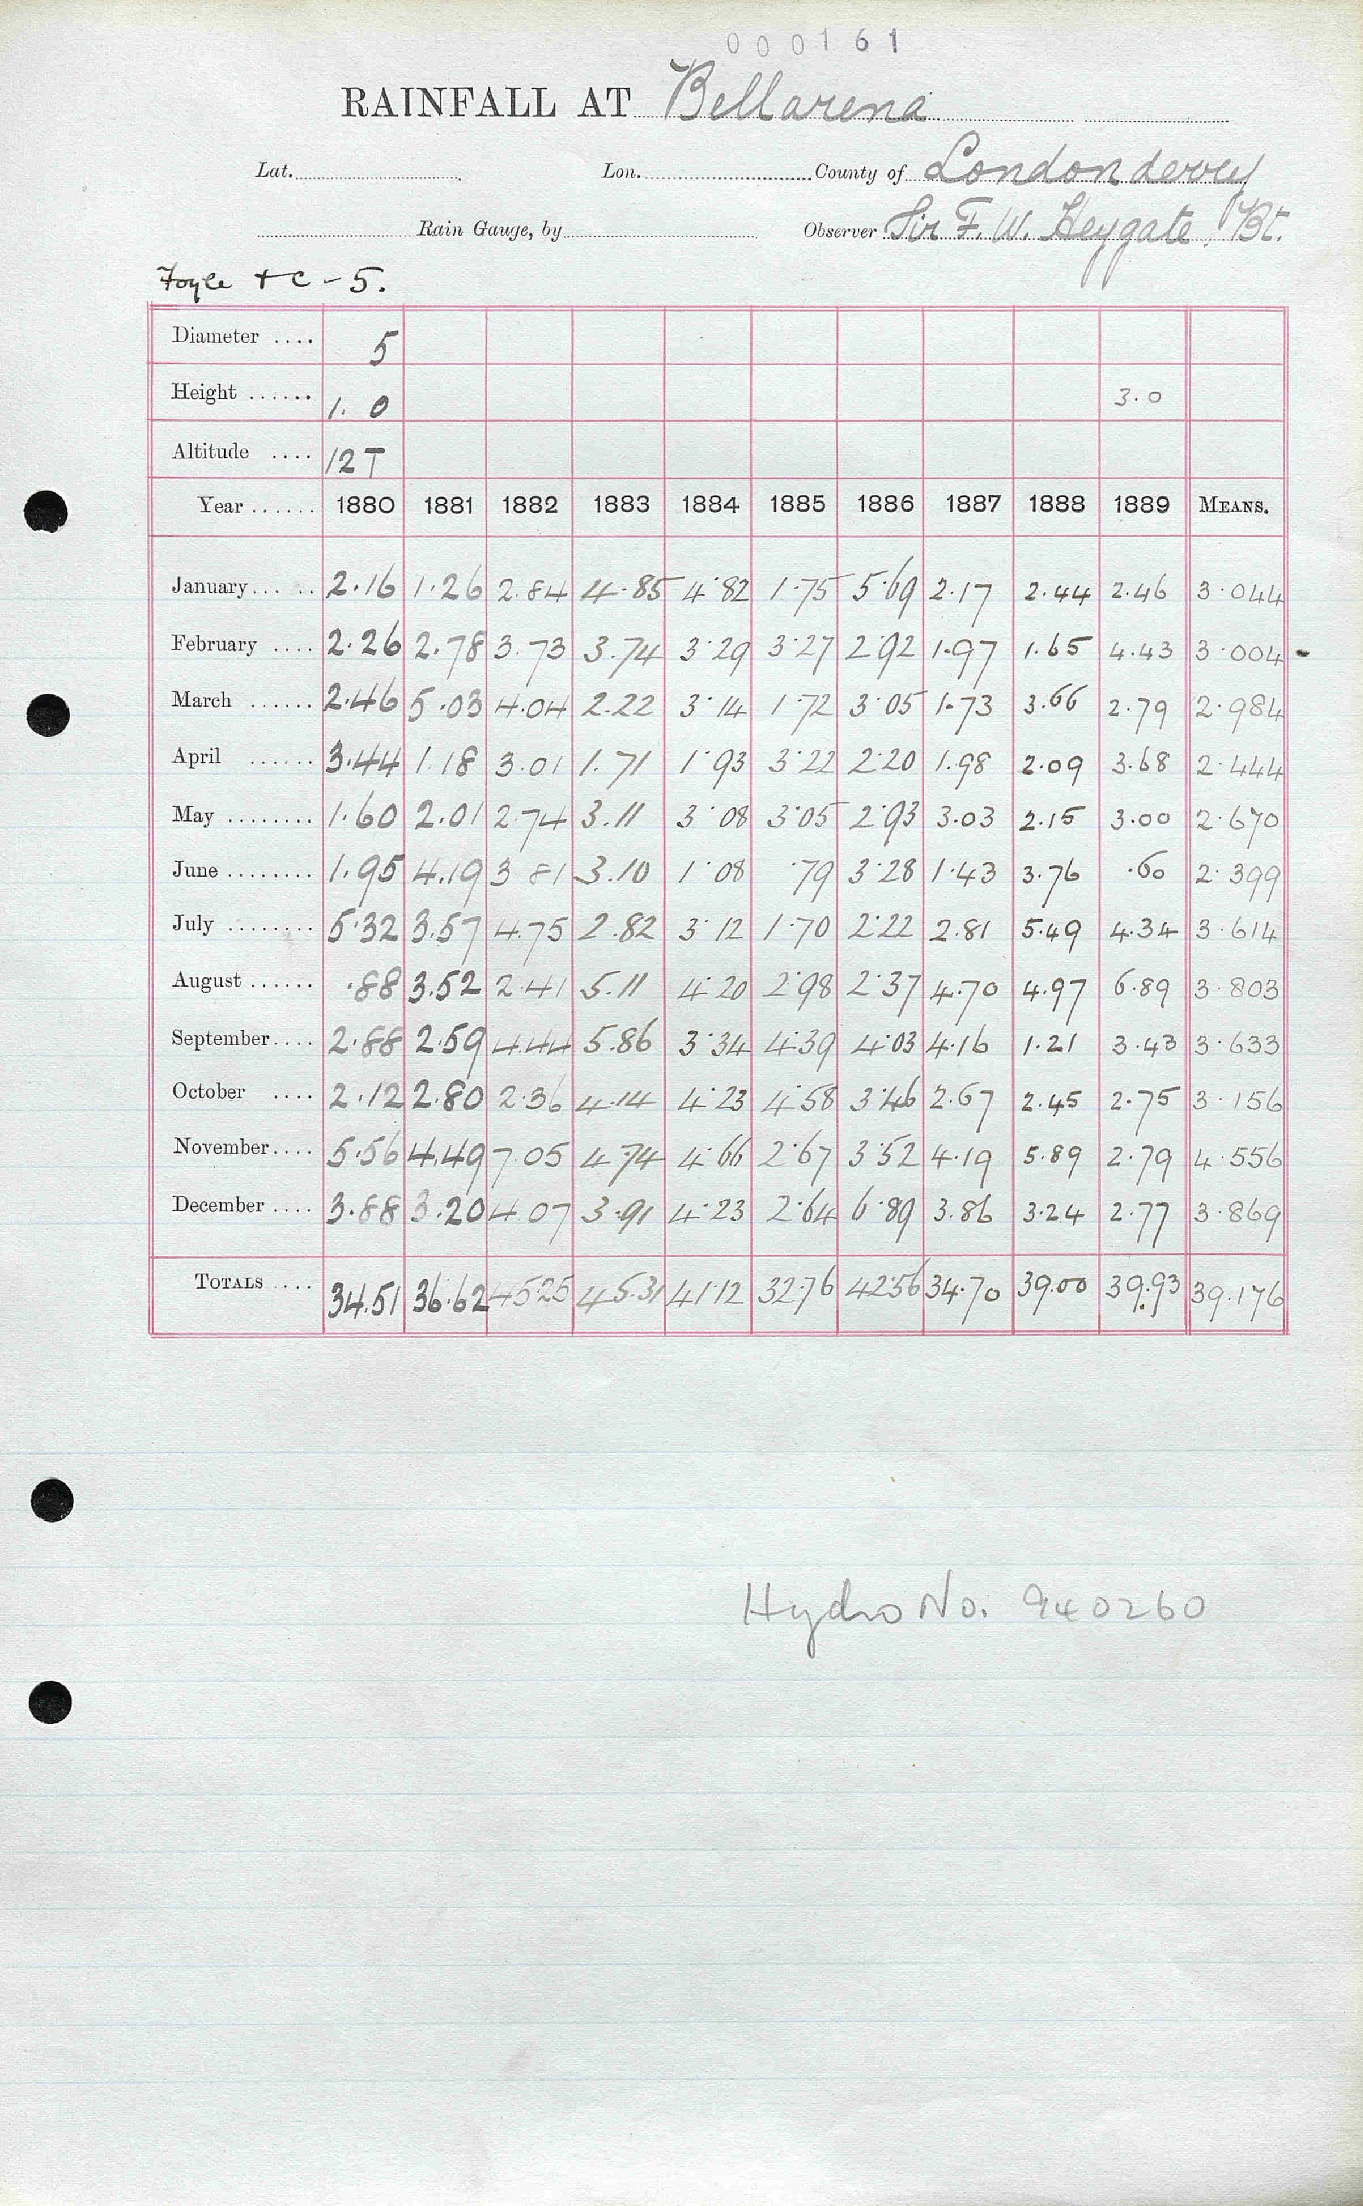 000161
RAINFALL AT Bellarena
Lat. Lon. County of Londonderry
Rain Gauge, by Observer Sir F. W. Heygate, Bt.
Foyle + C - 5.
Diameter .... 5
Height ...... 1. 0 3.0
Altitude .... 12 T
Year ...... 1880 1881 1882 1883 1884 1885 1886 1887 1888 1889 MEANS.
January ..... 2.16 1.26 2.84 4.85 4.82 1.75 5.69 2.17 2.44 2.46 3.044
February .... 2.26 2.78 3.73 3.74 3.29 3.27 2.92 1.97 1.65 4.43 3.004
March ...... 2.46 5.03 4.04 2.22 3.14 1.72 3.05 1.73 3.66 2.79 2.984
April ...... 3.44 1.18 3.01 1.71 1.93 3.22 2.20 1.98 2.09 3.68 2.444
May ........ 1.60 2.01 2.74 3.11 3.08 3.05 2.93 3.03 2.15 3.00 2.670
June ........ 1.95 4.19 3 81 3.10 1.08 .79 3.28 1.43 3.76 .60 2.399
July ........ 5.32 3.57 4.75 2.82 3.12 1.70 2.22 2.81 5.49 4.34 3.614
August ...... .88 3.52 2.41 5.11 4.20 2.98 2.37 4.70 4.97 6.89 3.803
September .... 2.88 2.59 4.44 5.86 3.34 4.39 4.03 4.16 1.21 3.43 3.633
October .... 2.12 2.80 2.36 4.14 4.23 4.58 3.46 2.67 2.45 2.75 3.156
November .... 5.56 4.49 7.05 4.74 4.66 2.67 3.52 4.19 5.89 2.79 4.556
December .... 3.88 3.20 4.07 3.91 4.23 2.64 6.89 3.86 3.24 2.77 3.869
TOTALS .... 34.51 36.62 45.25 45.31 41.12 32.76 42.56 34.70 39.00 39.93 39.176
Hydro No. 940260